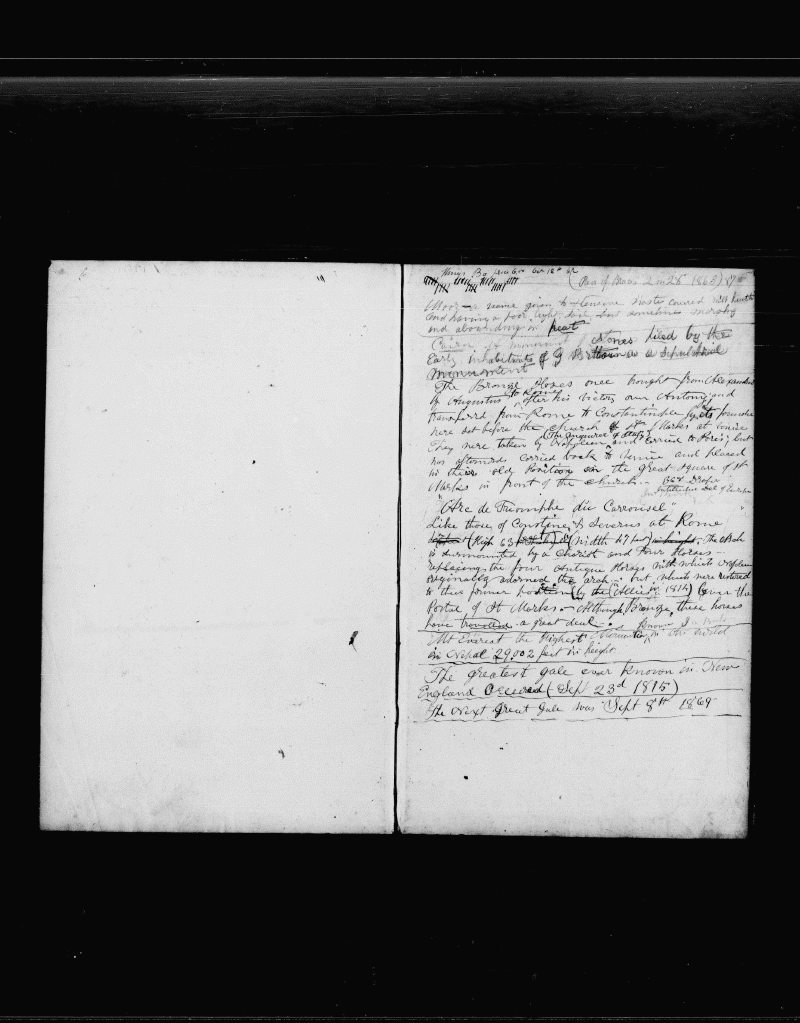 Moor - a name given to extensive wastes covered with heath
and having a poor, light soil, but sometimes marshy
and abounding in peat
Cairn A monument of stones piled by the
Early inhabitants of G Brittain as a sepulchral
Monument
The Bronze Horses once brought from Alexandria
by Augustus to Rome after his victory over Antony and
transferred from Rome to Constantinople by its founder
were set before the church of St Marks at Venice
They were taken by Napoleon (The Conqueror of Italy) and carried to Paris, but
was afterwards carried back to Venice and placed
in their old Position on the great square of St
Marks in front of the Church - See Draper
Intellectual Del of Europe
"Arc de Triomphe du Carrousel"
Like those of Constine & Severus at Rome
(High 63 (width 47 The Arch
is surmounted by a Chariot and Four Horses -
replacing the four Antique Horses with which Napoleon
originally adorned the arch - but which were restored
to their former position (by the Allies in 1814) over the
Portal of St Marks - Although Bronze, these horses
have travelled a great deal -
Mt Everest the Highest Known Mountain in the world
in Nepal 29,002 feet in height
The greatest gale ever known in New
England Occurred (Sept 23d 1815)
The Next Great Gale was Sept 8th 1869